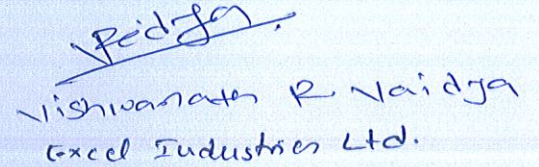 Vaidya
Vishwanath R Vaidya
Excel Industries Ltd.